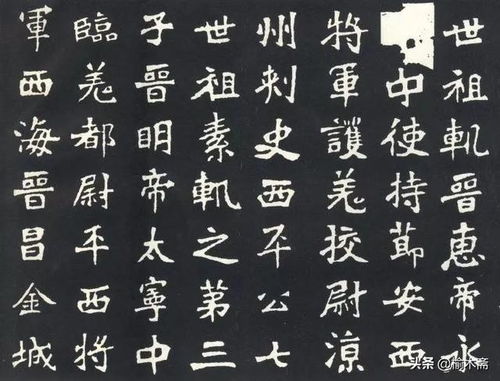 世祖軌晉惠帝永
中使持節安西
將軍護羌挍尉涼
州刺史西平公七
世祖素軌之第三
子晉明帝太寧中
臨羌都尉平西將
軍西海晉昌金城
头条 @榆木斋